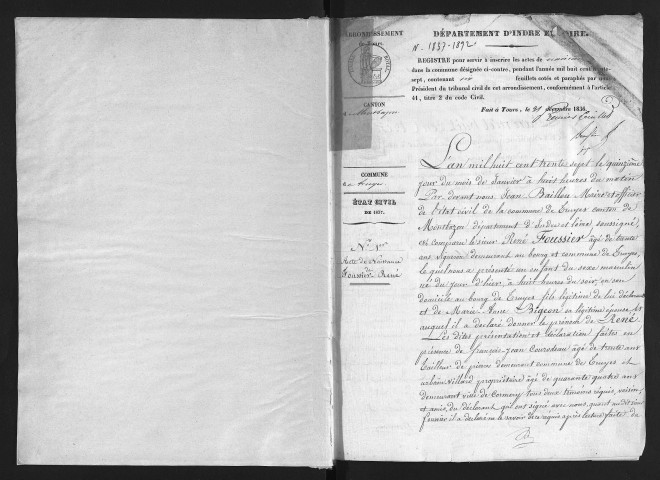 ARRONDISSEMENT
de Tours.
CANTON
de Montbazon
COMMUNE
de Truyes
ÉTAT CIVIL
DE 1837.
N° 1er
Acte de Naissance
de
Foussier René
DÉPARTEMENT D'INDRE ET LOIRE.
N. 1837-1892
REGISTRE pour servir à inscrire les actes de
dans la commune désignée ci-contre, pendant l'année mil huit cent
sept, contenant six feuillets cotés et paraphés par
Président du tribunal civil de cet arrondissement, conformément à l'article
41, titre 2 du code Civil.
Fait à Tours, le 31 décembre 1836.
L'an mil huit cent trente sept le quinzième
jour du mois de Janvier à huit heures du matin
Par devant nous Jean Baillou Maire et officier
de l'état civil de la commune de Truyes canton de
Montbazon département d'Indre et Loire, soussigné,
est comparu le sieur René Foussier âgé de trente
ans demeurant au bourg et commune de Truyes,
lequel nous a présenté un enfant du sexe masculin
né du jour d'hier, à huit heures du soir, en son
domicile au bourg de Truyes fils légitime de lui déclarant
et de Marie-Anne Bigeon sa légitime épouse, et
auquel il a déclaré donner le prénom de René.
Les dites présentation et déclaration faites en
présence de françois-jean Courodeau âgé de trente ans
tailleur de pierre demeurant commune de Truyes et
urbain Villard propriétaire âgé de quarante quatre ans
demeurant ville de Cormery tous deux témoins réquis, voisins
et amis, du déclarant qui ont signé avec nous, quant audit sieur
foussier il a déclaré ne le savoir de ce réquis après lecture faite du